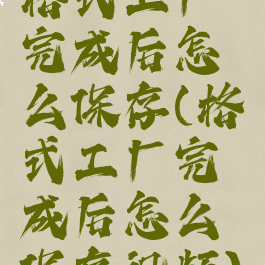 格式工厂
完成后怎
么保存(格
式工厂完
成后怎么
保存视频)